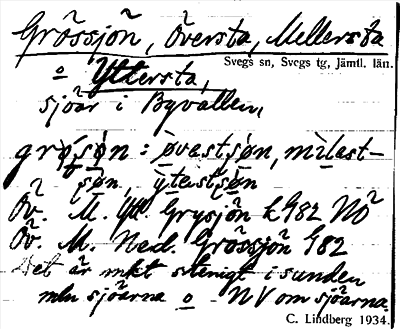 Grössjön, Översta, Mellersta
Svegs sn, Svegs tg, Jämtl. län.
o Yttersta,
sjöar i Byvallen,
grø̀sø̀n: ø̀vastsø̀n, mìlast-
sø̀n, ỳtastsø̀n
Öv. M. Ytt Grysjön K 982 NÖ
Öv. M. Ned. Grössjön G82
Det är mkt stenigt i sunden
mln sjöarna o NV om sjöarna.
C. Lindberg 1934.